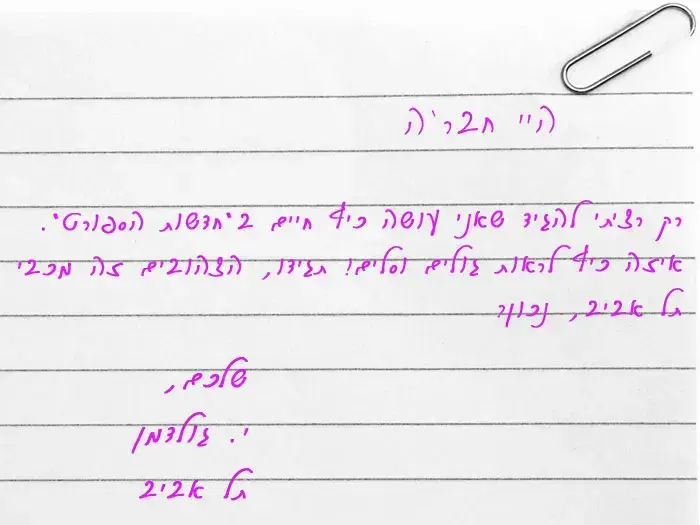 היי חבר'ה
רק רציתי להגיד שאני עושה כיף חיים ב"חדשות הספורט".
איזה כיף לראות גולים וסלים! תגידו, הצהובים זה מכבי
תל אביב, נכון?
שלכם,
י. גולדמן
תל אביב